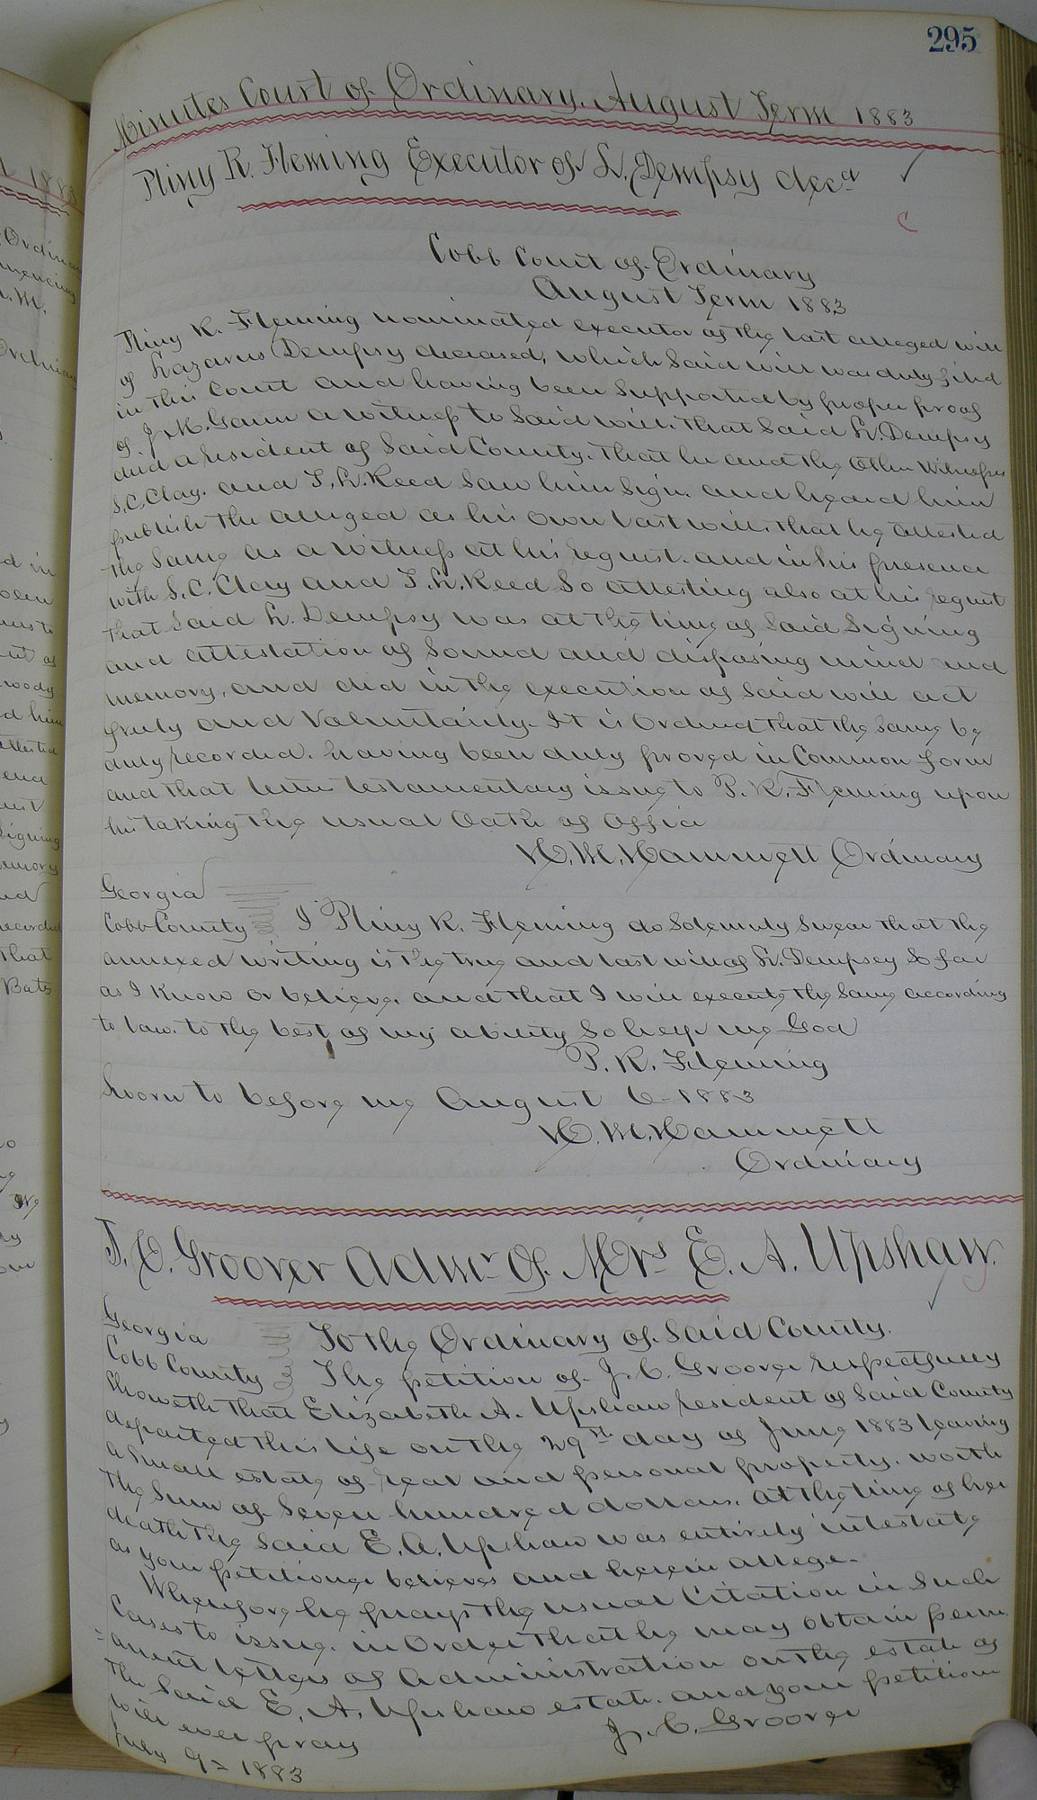 295
Minutes Court of Ordinary. August Term 1883
Pliny R. Fleming Executor of L. Dempsy decd
Cobb Court of Ordinary
August Term 1883
Pliny R. Fleming nominated executor of the last alleged will
of Lazarus Dempsy deceased, which said will was duly filed
in this Court and having been supported by proper proof
of J. M. Gann a witness to said will. that said L. Dempsy
died a resident of said County. that he and the other Witnesses
S. C. Clay. and T. L. Reed saw him sign. and heard him
publish the alleged as his own last will. that he attested
the same as a witness at his request. and in his presence
with S. C. Clay and T. L. Reed so attesting also at his request
that said L. Dempsy was at the time of said signing
and attestation of sound and disposing mind and
memory, and did in the execution of said will act
freely and voluntarily. It is Ordered that the same be
duly recorded. having been duly proved in Common form
and that letters testamentary issue to P. R. Fleming upon
his taking the usual Oath of Office
H. M. Hammett Ordinary
Georgia
Cobb County I Pliny R. Fleming do solemnly swear that the
annexed writing is the true and last will of L. Dempsey so far
as I know or believe. and that I will execute the same according
to law. to the best of my ability so help me God
P. R. Fleming
Sworn to before me August 6 - 1883
H. M. Hammett
Ordinary
J. C. Groover Admr Of Mrs E. A. Upshaw.
Georgia To the Ordinary of said County.
Cobb County The petition of J. C. Groover respectfully
showeth that Elizabeth A. Upshaw resident of said County
departed this life on the 29th day of June 1883 leaving
a small estate of real and personal property. worth
the sum of seven hundred dollars. at the time of her
death the said E. A. Upshaw was entirely intestate
as your petitioner believes and herein allege.
Wherefore he prays the usual Citation in such
Cases to issue. in Order that he may obtain perm
=anent letters of Administration on the estate of
the said E. A. Upshaw estate. and your petitioner
will ever pray J. C. Groover
July 9= 1883